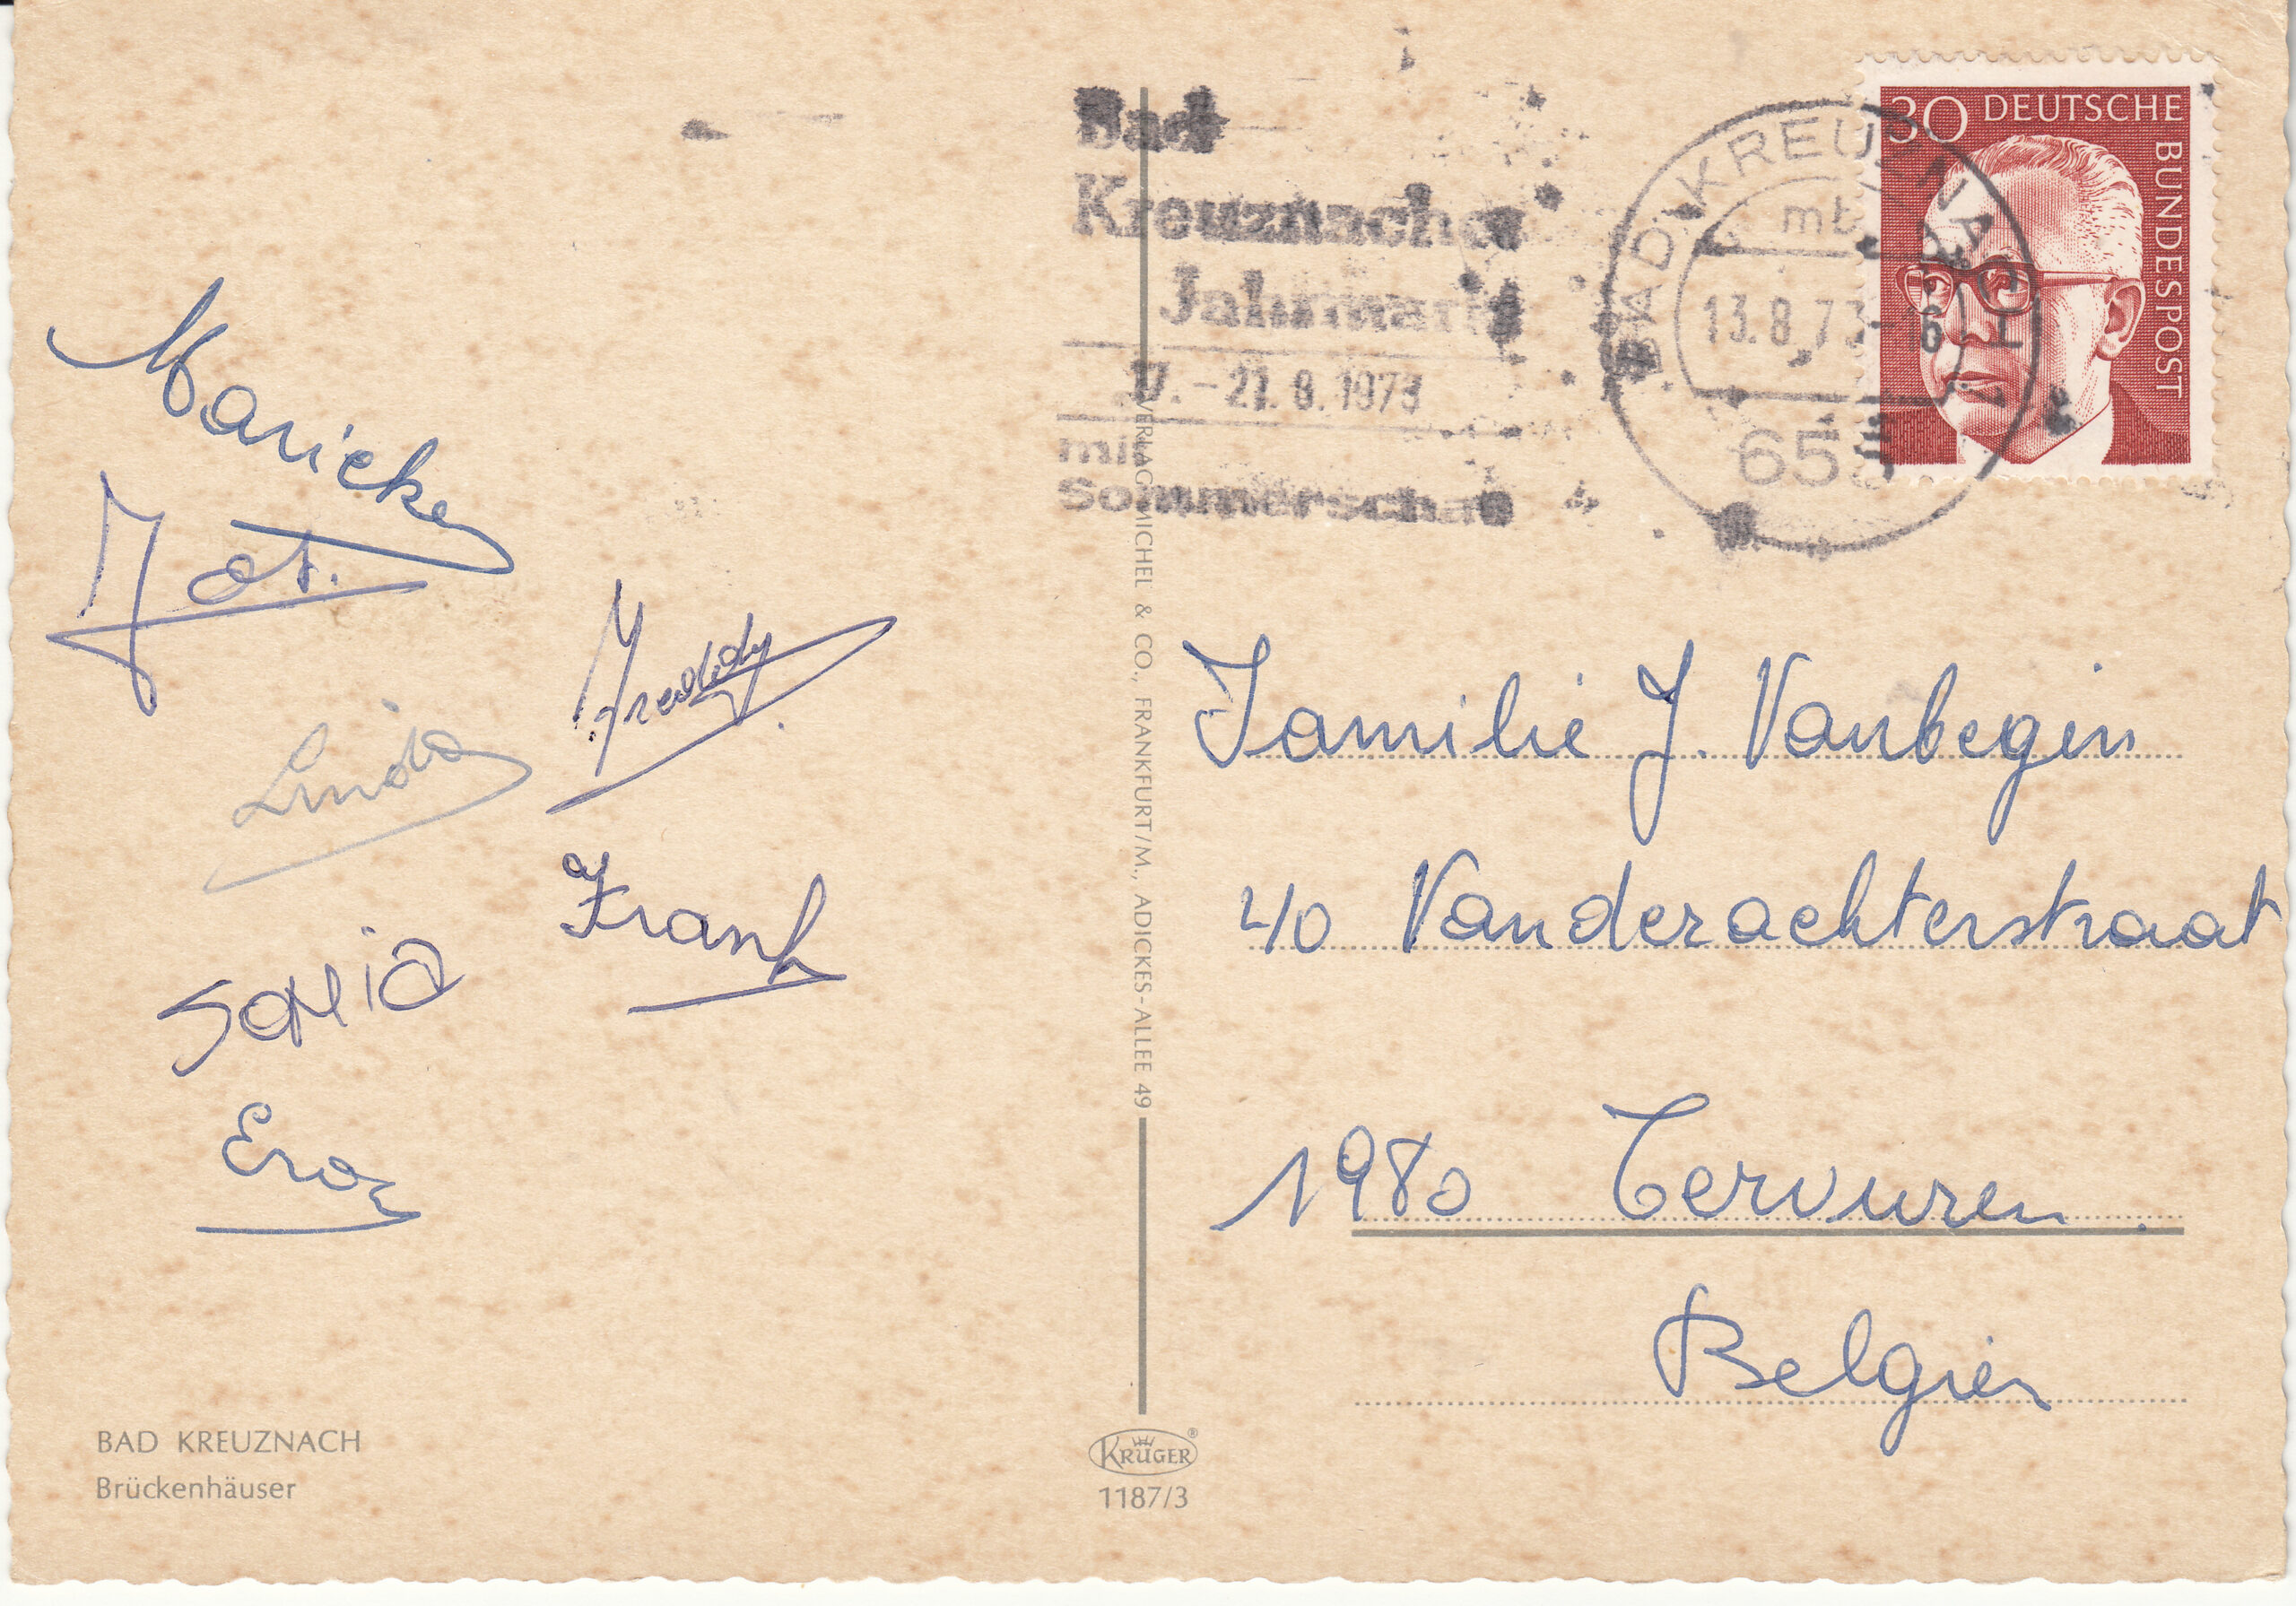 Marieke
Jot.
Freddy
Linda
Frank
SONiA
Eros
BAD KREUZNACH
Brückenhäuser
Bad
Kreuznacher
Jahrmarkt
17.-21.8.1973
mit
Sommerschau
BAD KREUZNACH
mb
13.8.73-16
655
30 DEUTSCHE
BUNDESPOST
VERLAG MICHEL & CO., FRANKFURT/M., ADICKES-ALLEE 49
Familie J. Vanbegin
40 Vanderachterstraat
1980 Tervuren.
Belgien
KRÜGER®
1187/3